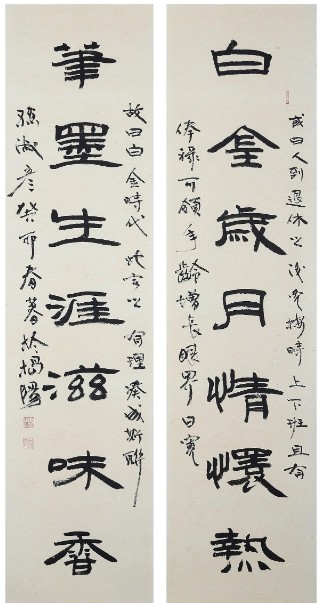 或曰人到退休以後免按時上下班且有
白金歲月情懷熱
俸祿可領年齡增長眼界日寬
故曰白金時代此言 理湊成斯聯
筆墨生涯滋味香
孫淑彥癸卯春暮於揭陽